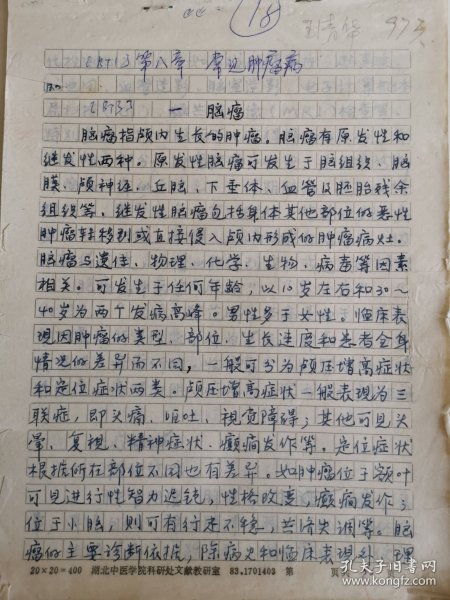 18
973
第八章 常见肿瘤病
一 脑瘤
脑瘤指颅内生长的肿瘤。脑瘤有原发性和
继发性两种。原发性脑瘤可发生于脑组织、脑
膜、颅神经、丘脑、下垂体、血管及胚胎残余
组织等。继发性脑瘤包括身体其他部位的恶性
肿瘤转移到或直接侵入颅内形成的肿瘤病灶。
脑瘤与遗传、物理、化学、生物、病毒等因素
相关。可发生于任何年龄，以10岁左右和30～
40岁为两个发病高峰。男性多于女性。临床表
现因肿瘤的类型、部位、生长速度和患者全身
情况的差异而不同，一般可分为颅压增高症状
和定位症状两类。颅压增高症状一般表现为三
联症，即头痛、呕吐、视觉障碍；其他可见头
晕、复视、精神症状、癫痫发作等。定位症状
根据所在部位不同也有差异。如肿瘤位于额叶
可见进行性智力迟钝，性格改变，癫痫发作；
位于小脑，则可有行走不稳，共济失调等。脑
瘤的主要诊断依据，除病史和临床表现外，理
20×20=400 湖北中医学院科研处文献教研室 83.1701403 第 页
孔夫子旧书网